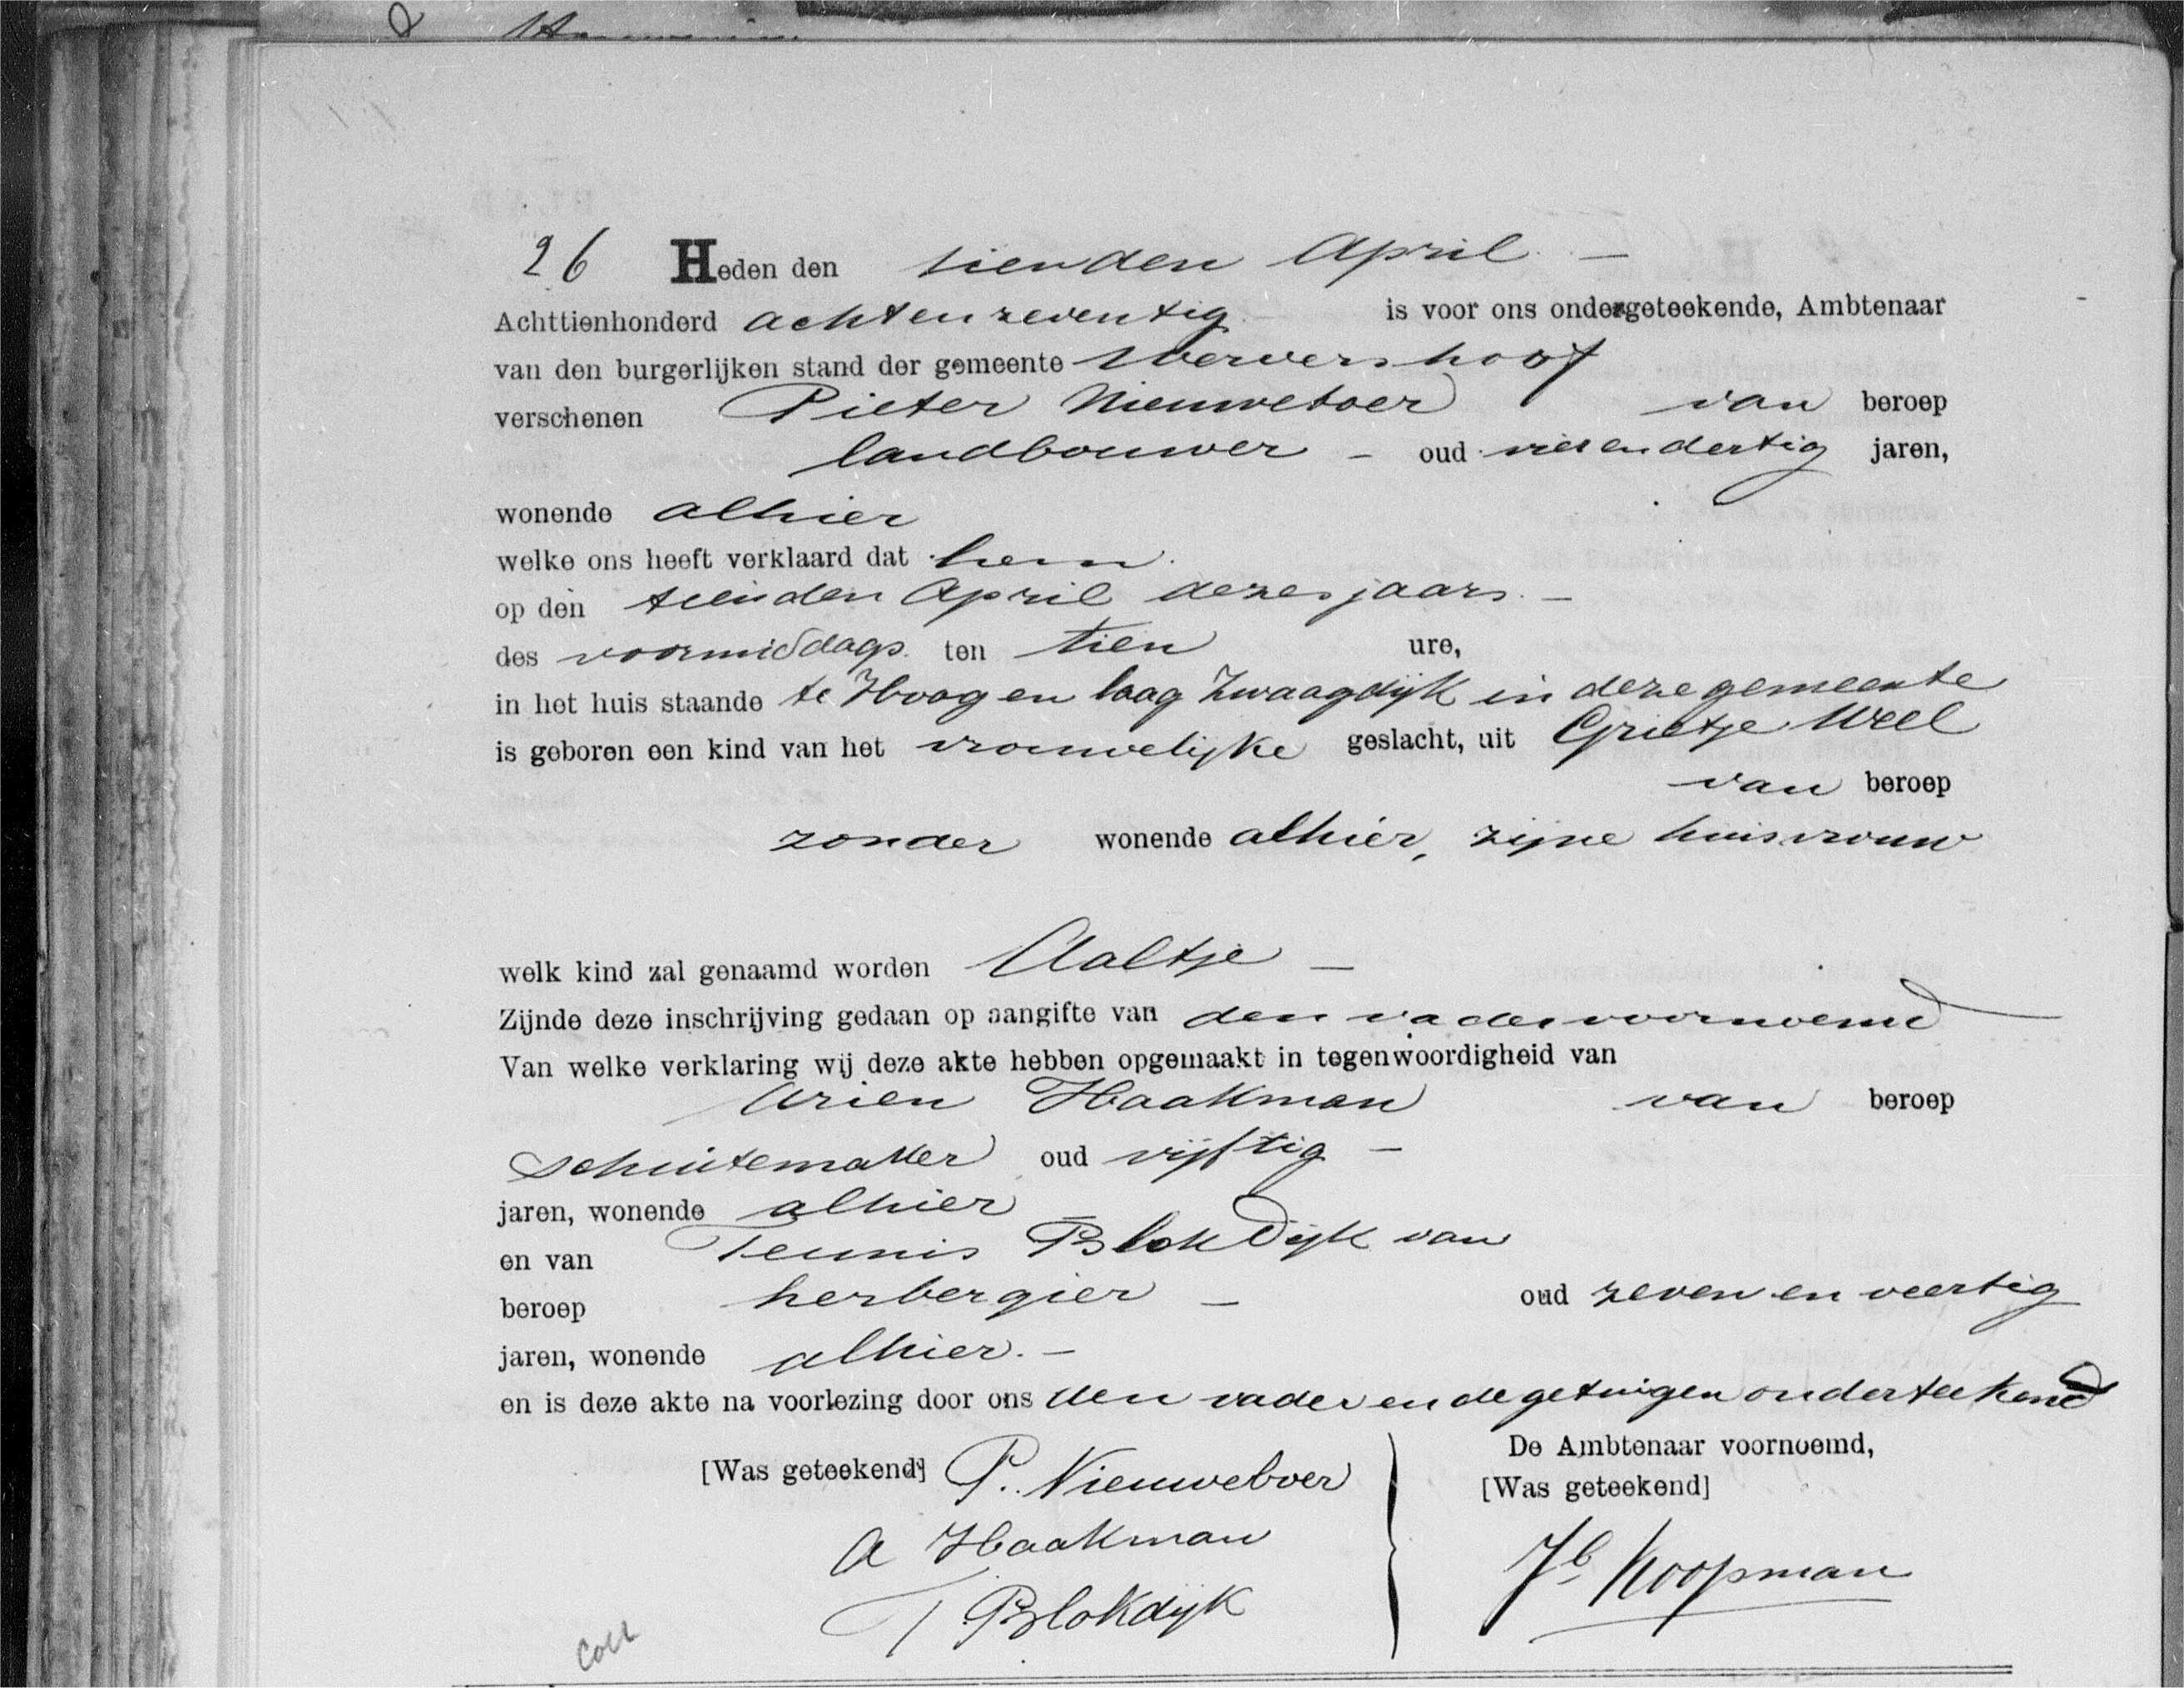 26 Heden den tienden April –
Achttienhonderd achtenzeventig is voor ons ondergeteekende, Ambtenaar
van den burgerlijken stand der gemeente Wervershoof
verschenen Pieter Nieuweboer van beroep
landbouwer – oud vierendertig jaren,
wonende alhier
welke ons heeft verklaard dat hem
op den tienden April dezes jaars. –
des voormiddags ten tien ure,
in het huis staande te Hoog en laag Zwaagdijk in deze gemeente
is geboren een kind van het vrouwelijke geslacht, uit Grietje Weel
van beroep
zonder wonende alhier, zijne huisvrouw
welk kind zal genaamd worden Aaltje –
Zijnde deze inschrijving gedaan op aangifte van den vader voornoemd
Van welke verklaring wij deze akte hebben opgemaakt in tegenwoordigheid van
Arien Haakman van beroep
schuitemaker oud vijftig –
jaren, wonende alhier –
en van Teunis Blokdijk van
beroep herbergier – oud zeven en veertig
jaren, wonende alhier. –
en is deze akte na voorlezing door ons den vader en de getuigen onderteekend
De Ambtenaar voornoemd,
[Was geteekend] P. Nieuweboer [Was geteekend]
A Haakman
Jb Koopman
T Blokdijk
Coll